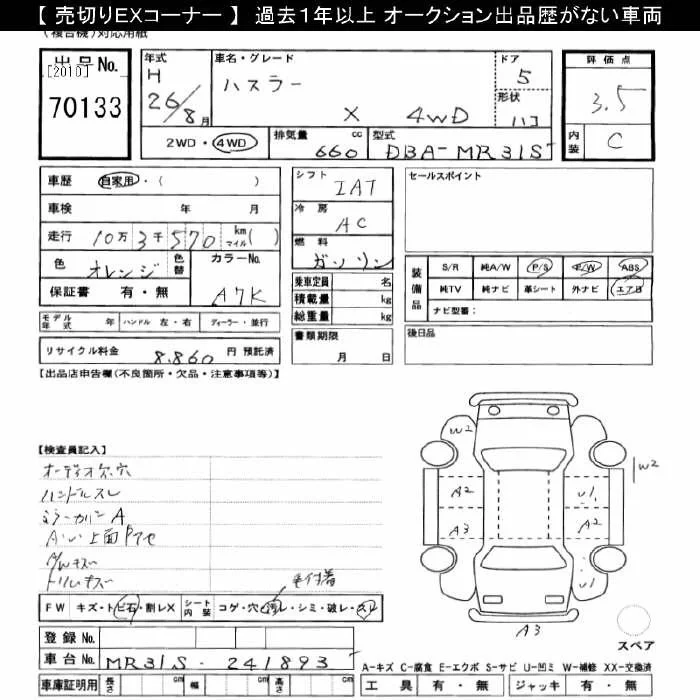 【 売切りEXコーナー 】 過去1年以上 オークション出品歴がない車両
(複合機)対応用紙
出品No.
[2010]
70133
年式 H 26/8月
車名・グレード ハスラー X 4WD
ドア 5
形状 ハコ
評価点 3.5
内装 C
2WD・4WD
排気量 660 cc
型式 DBA-MR31S
車歴 自家用・( )
車検 年 月
走行 10万3千570 km マイル( )
色 オレンジ 色替 カラーNo. A7K
保証書 有・無
モデル年式 年 ハンドル 左・右 ディーラー・並行
リサイクル料金 8,860 円 預託済
シフト IAT
冷房 AC
燃料 ガソリン
乗車定員 名
積載量 kg
総重量 kg
書類期限 月 日
セールスポイント
装備品 S/R 純A/W P/S P/W ABS
純TV 純ナビ 革シート 外ナビ エアB
ナビ型番:
後日品
【出品店申告欄(不良箇所・欠品・注意事項等)】
【検査員記入】
オーディオ欠 穴
ハンドルスレ
ミラーカバー A
上面
W2
W2
A2
U1
A3
A2
U1
A3
スペア
毛付着
FW キズ・トビ石・割レX シート内装 コゲ・穴・汚レ・シミ・破レ・スレ
登録No.
車台No. MR31S-241893
車庫証明用 長さ cm 幅 cm 高さ cm
A-キズ C-腐食 E-エクボ S-サビ U-凹ミ W-補修 XX-交換済
工具 有・無 ジャッキ 有・無